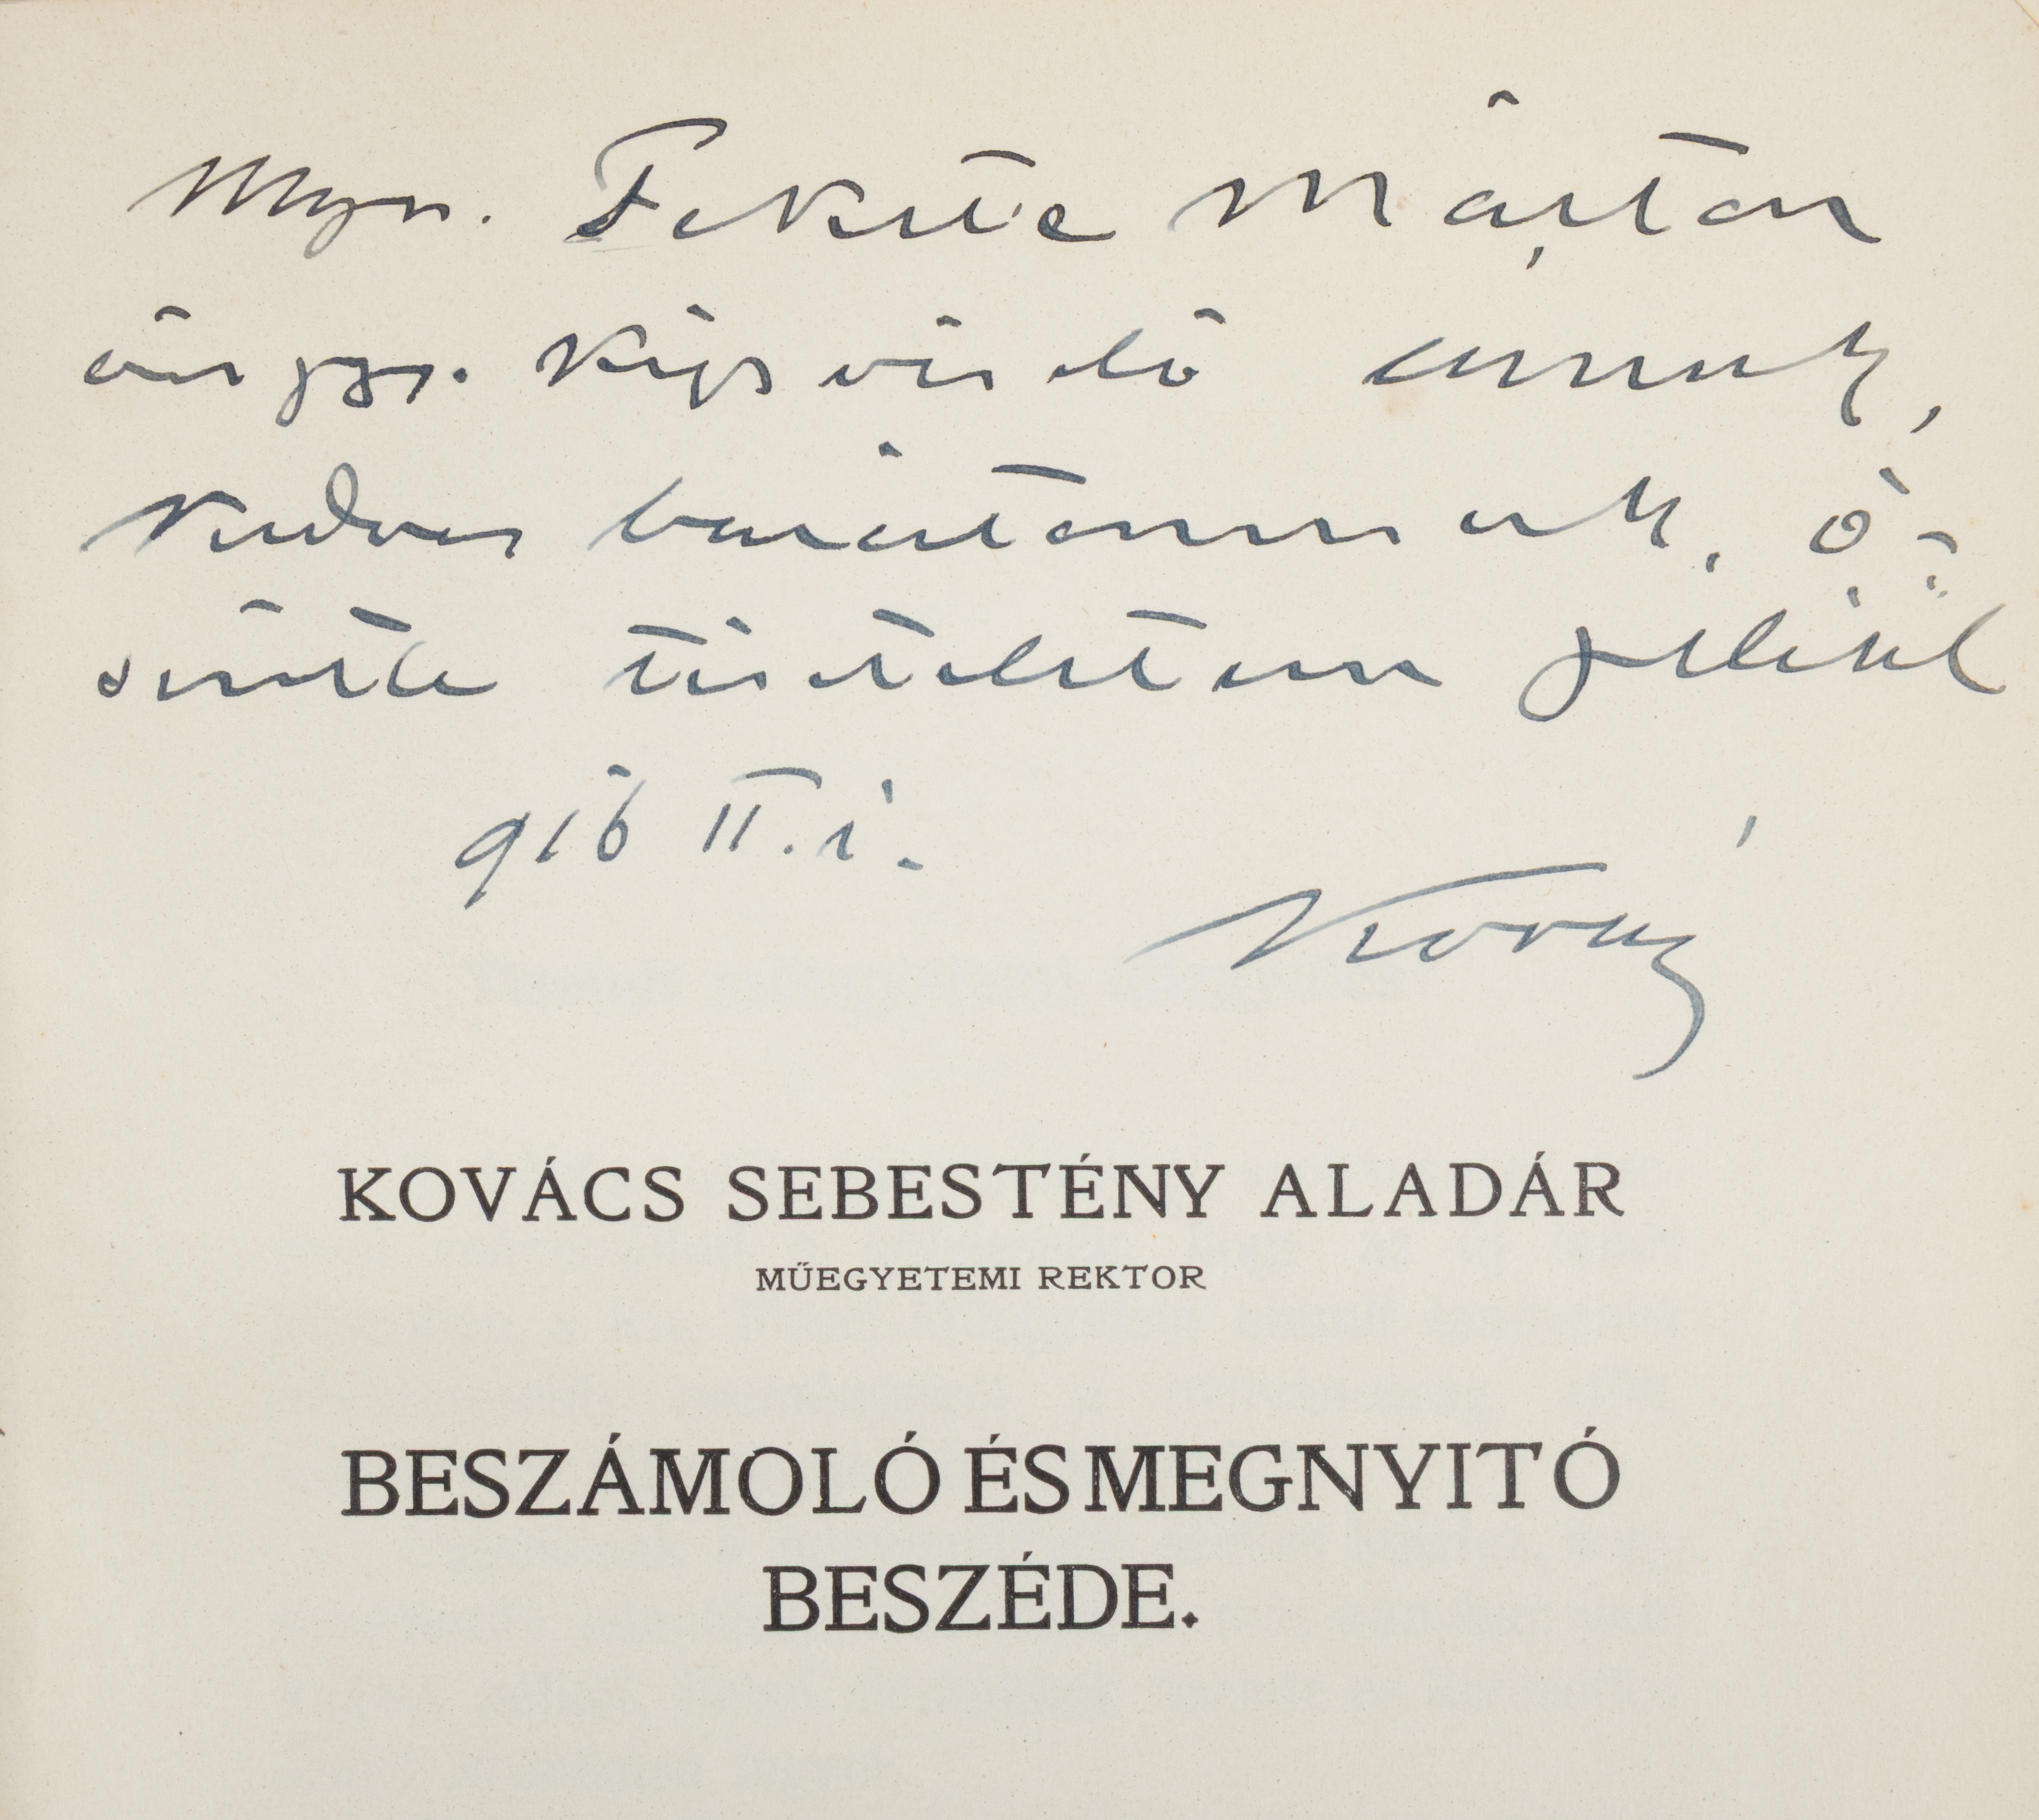 Mgs. Fekete Márton
orsggy. képviselő urnak,
kedves barátomnak, ő-
szinte tiszteletem jeléül
916 II. 1.
Kovács
KOVÁCS SEBESTÉNY ALADÁR
MŰEGYETEMI REKTOR
BESZÁMOLÓ ÉS MEGNYITÓ
BESZÉDE.